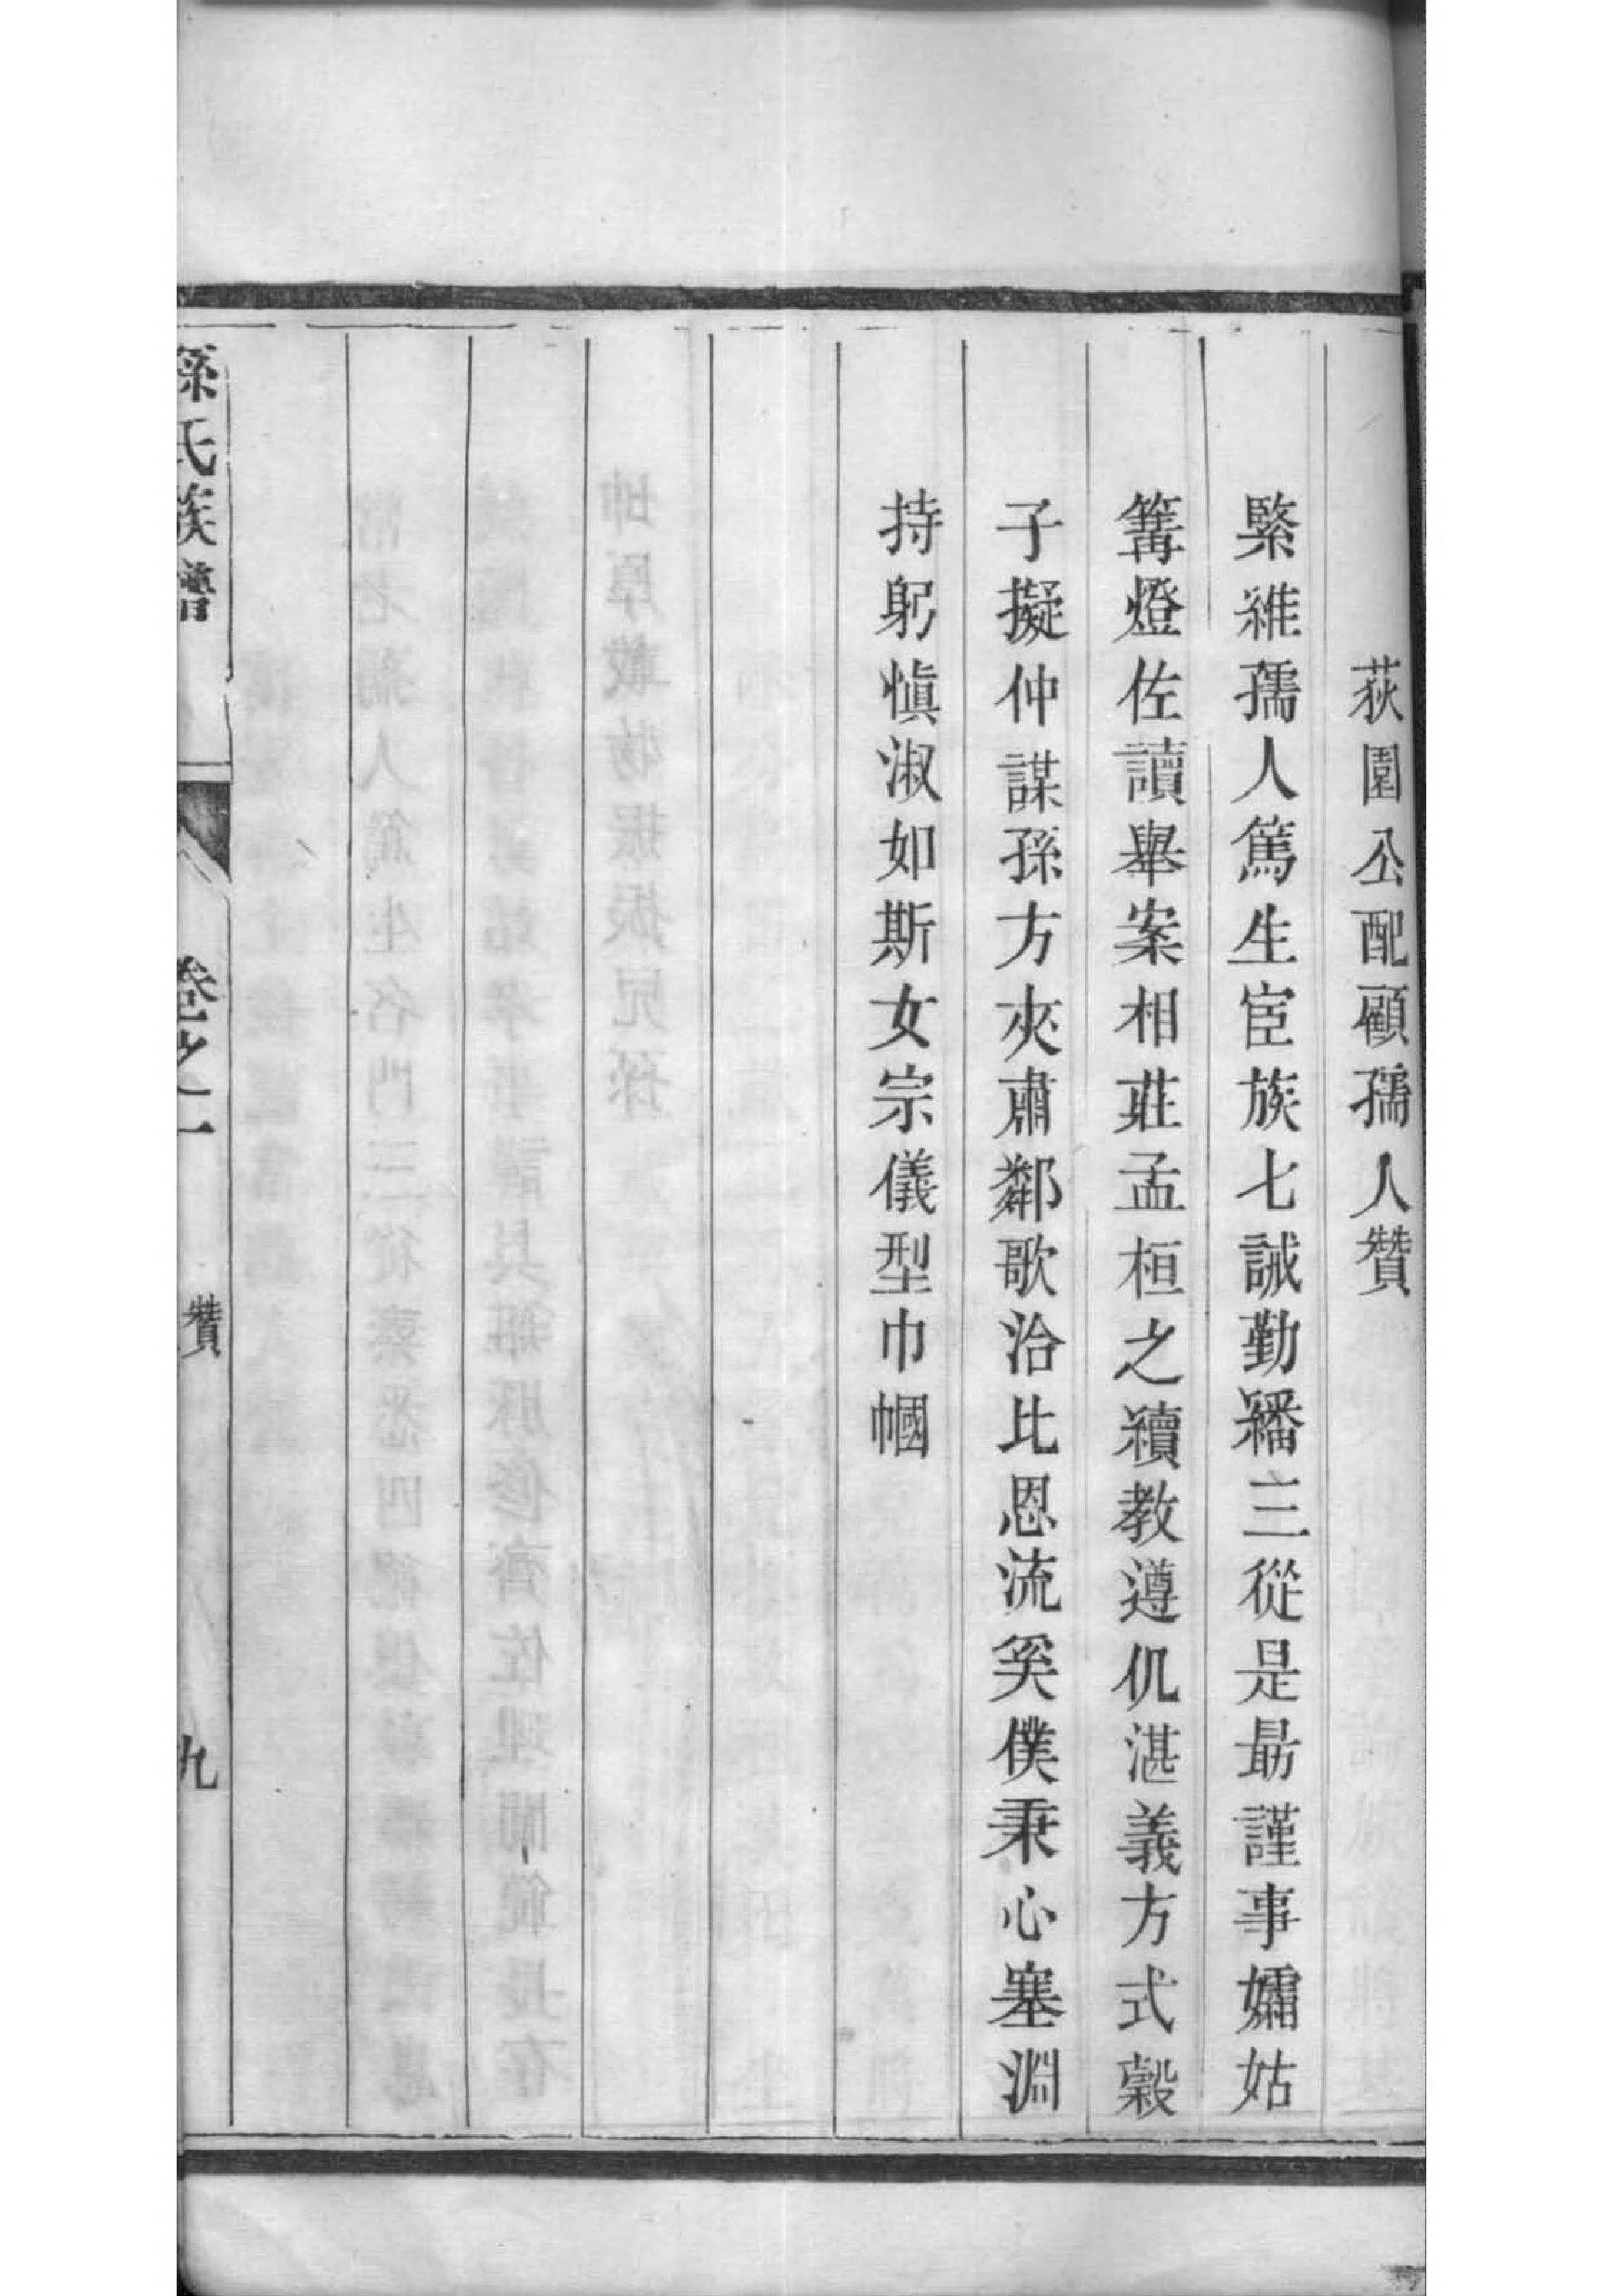 荻園公配顧孺人贊
緊維孺人篤生宦族七誡勤繙三從是勗謹事孀姑
篝燈佐讀舉案相莊孟桓之續教遵仉湛義方式榖
子擬仲謀孫方夾肅鄰歌洽比恩流奚僕秉心塞淵
持躬慎淑如斯女宗儀型巾幗
孫氏族譜
卷之一
贊
九